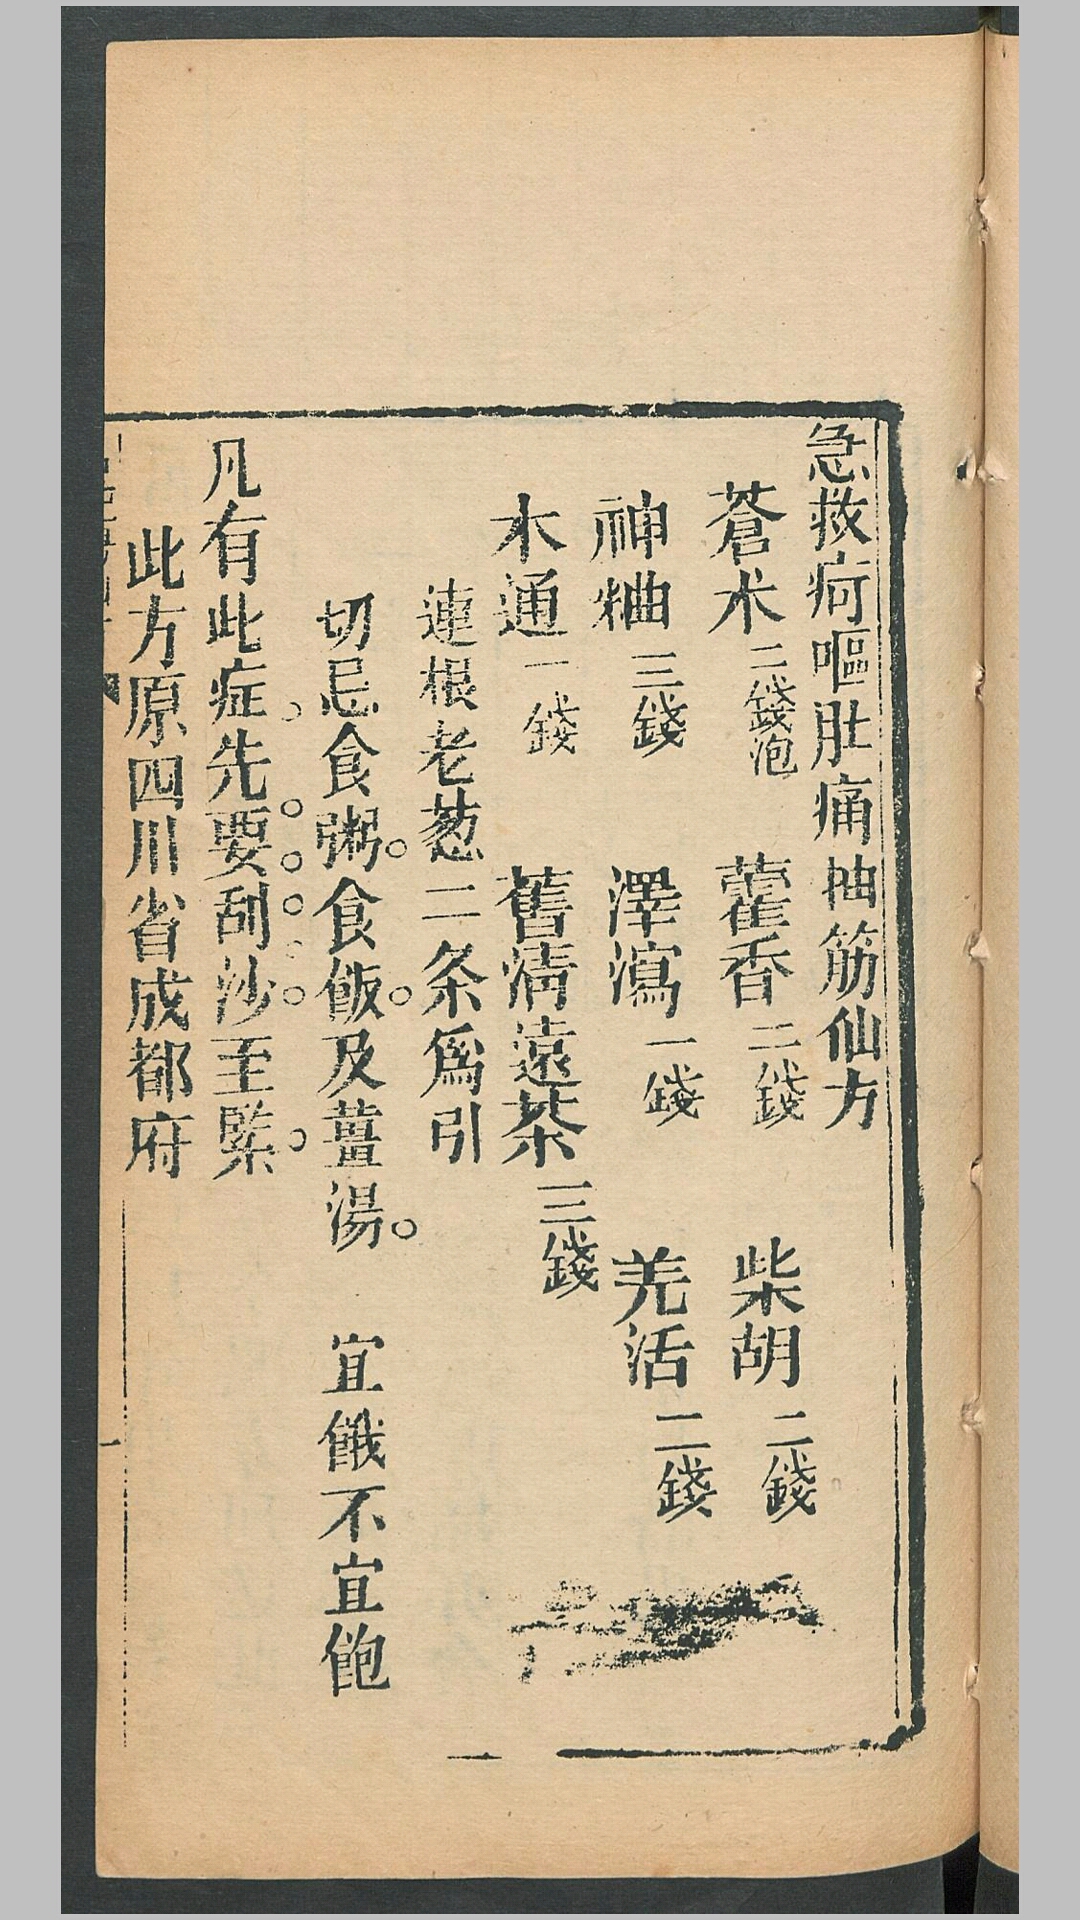 急救疴嘔肚痛抽筋仙方
蒼朮二錢泡 藿香二錢 柴胡二錢
神粬三錢 澤瀉一錢 羌活二錢
木通一錢 舊淸遠茶三錢
連根老葱二条爲引
切忌食粥。食飯。及薑湯。 宜餓不宜飽
凡有此症。先要刮沙。至緊。
此方原四川省成都府